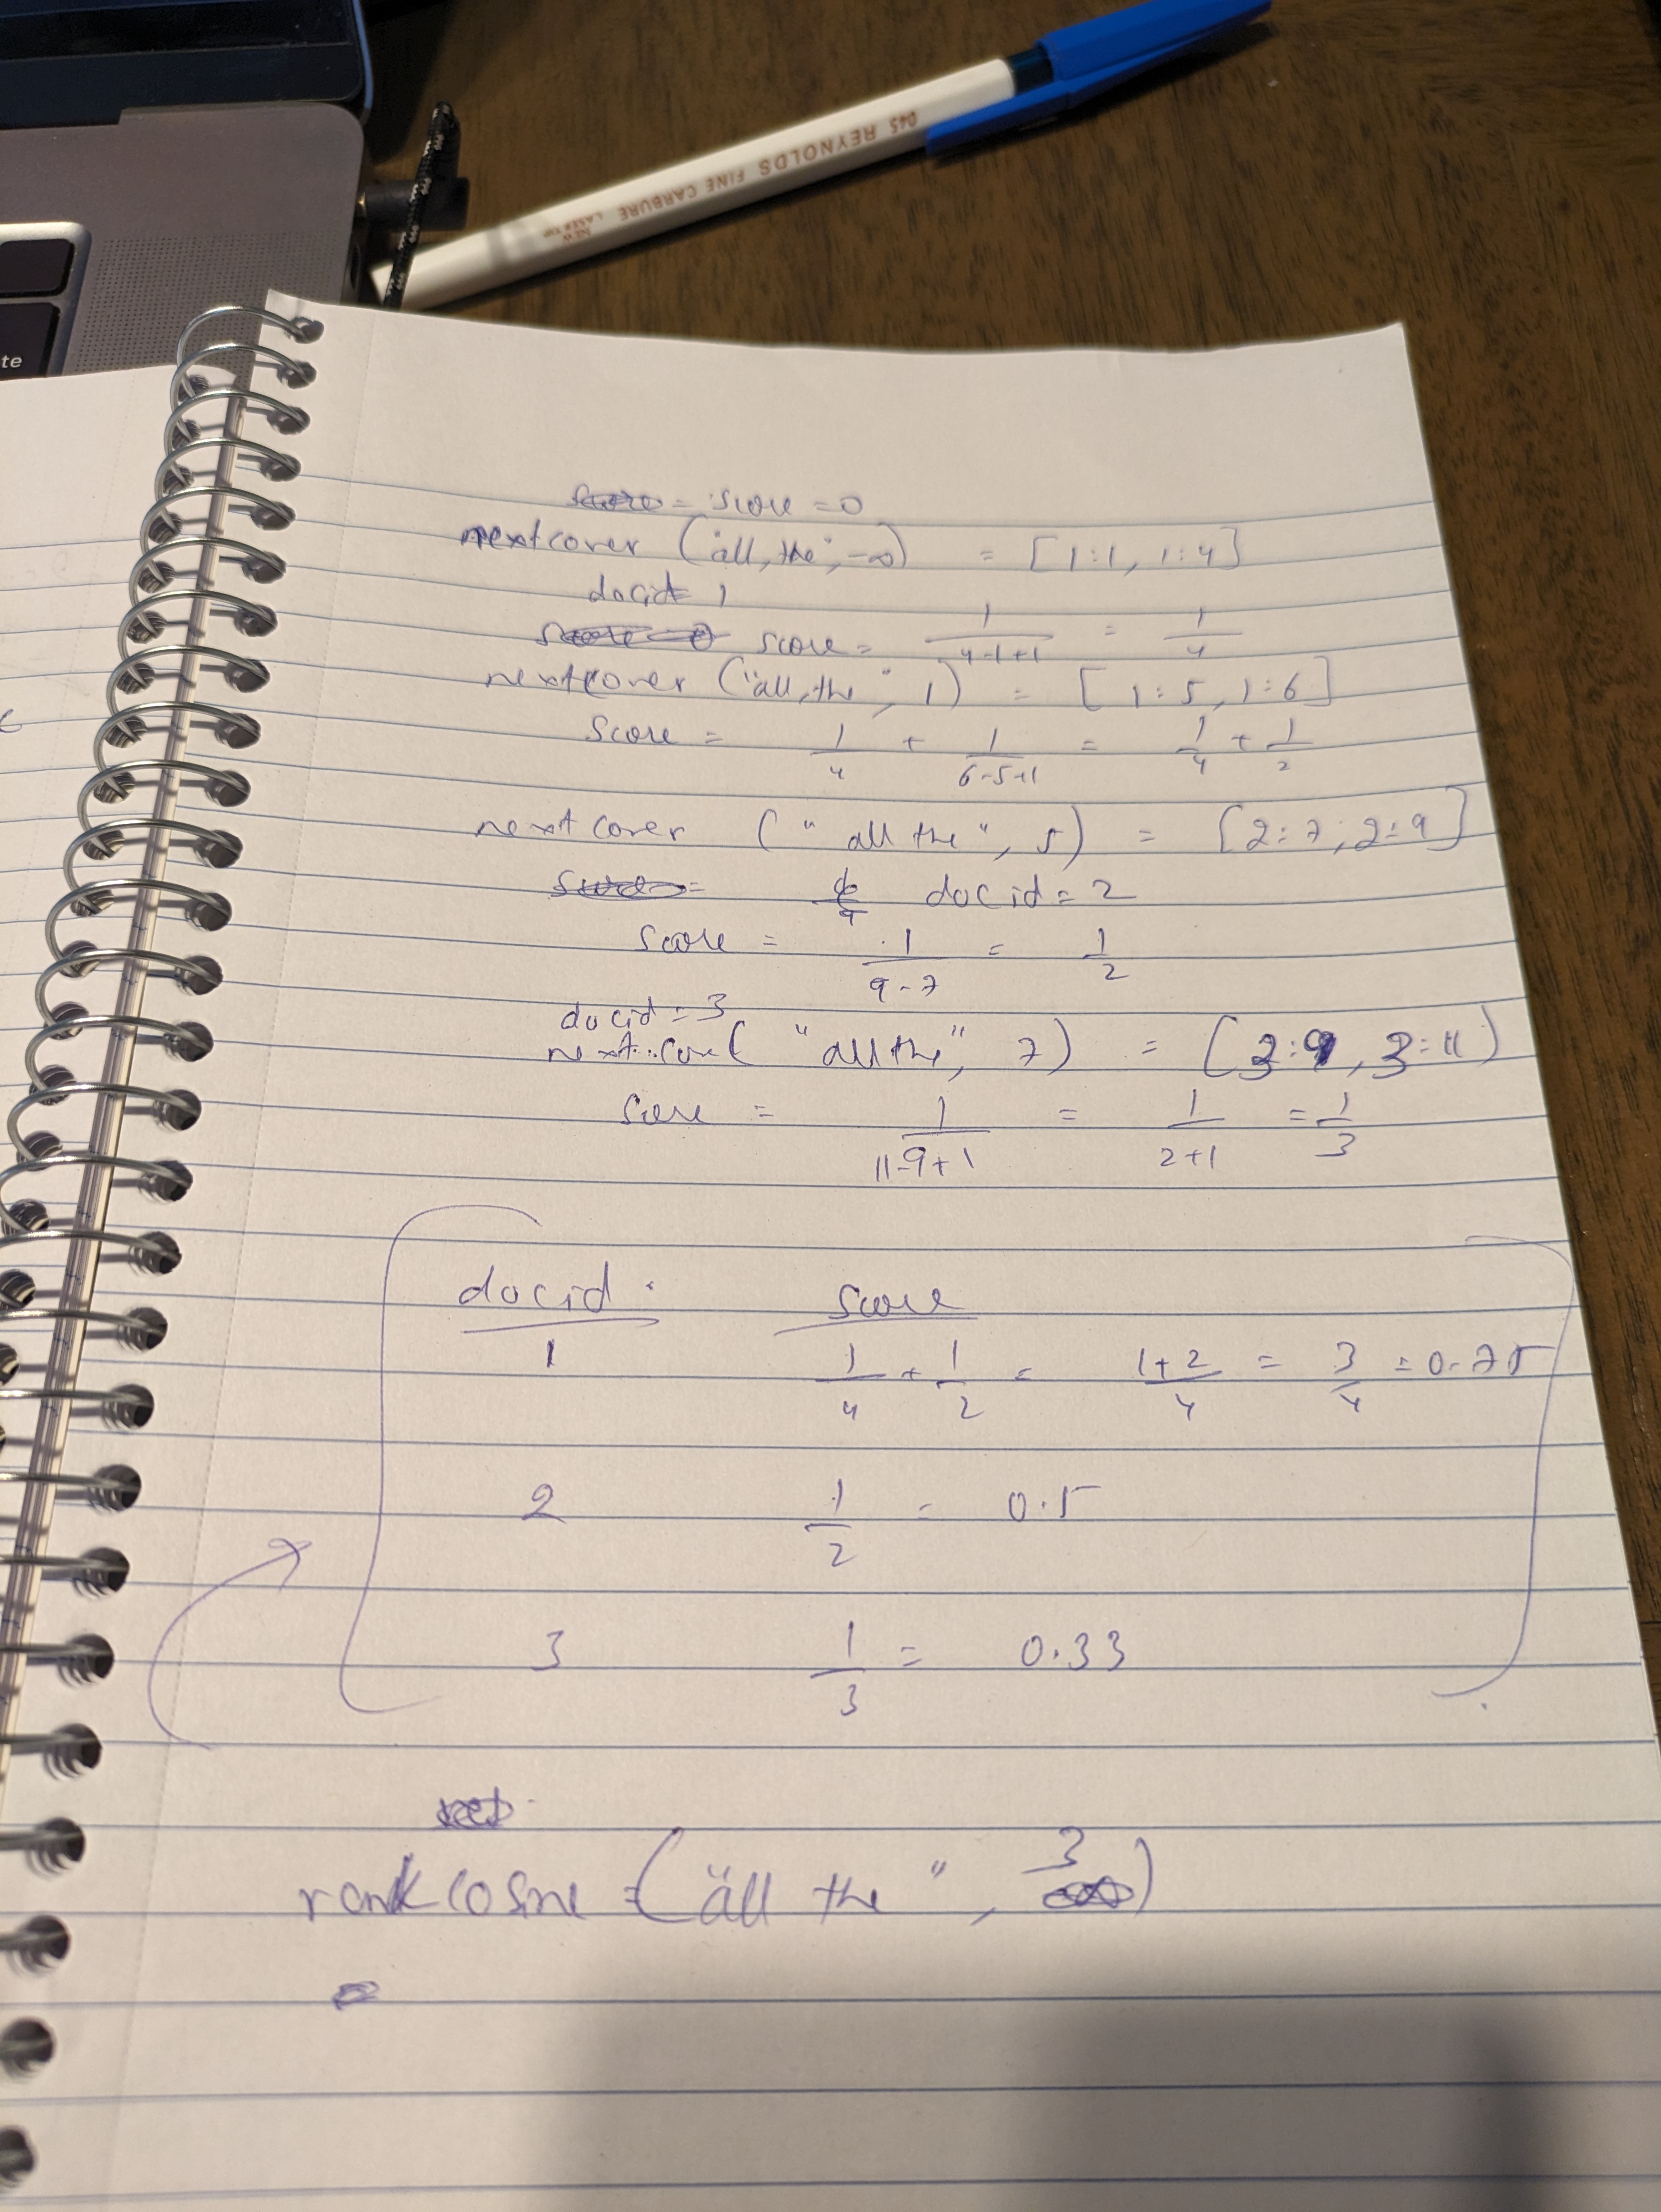 te
045 REYNOLDS FINE CARBURE
NEW
LASER TIP
= score = 0
nextcover ("all, the", -∞) = [1:1, 1:4]
docid= 1
score = 1/(4-1+1) = 1/4
nextcover ("all, the", 1) = [1:5, 1:6]
Score = 1/4 + 1/(6-5+1) = 1/4 + 1/2
next cover ("all the", 5) = [2:7, 2:9]
docid = 2
score = 1/(9-7) = 1/2
docid = 3
next cover ("all the", 7) = [3:9, 3:11)
Score = 1/(11-9+1) = 1/(2+1) = 1/3
docid. score
1 1/4 + 1/2 = (1+2)/4 = 3/4 = 0.75
2 1/2 = 0.5
3 1/3 = 0.33
rank cosine = ("all the", 3)